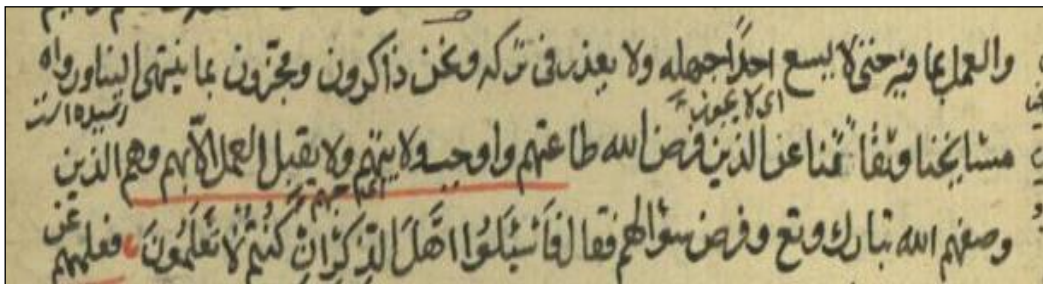 والعمل بما فيه حتى لا يسع احدا جهله ولا يعذر في تركه ونحن ذاكرون ومخبرون بما ينتهى الينا ورواه
اى لا يجوز
رسيده است
مشايخنا وثقاتنا عن الذين فرض الله طاعتهم واوجب ولايتهم ولا يقبل العمل الا بهم وهم الذين
وصفهم الله تبارك وتع وفرض سؤالهم فقال فَاسْئَلُوا اَهْلَ الذِّكْرِ اِنْ كُنْتُمْ لَا تَعْلَمُونَ فعليهم